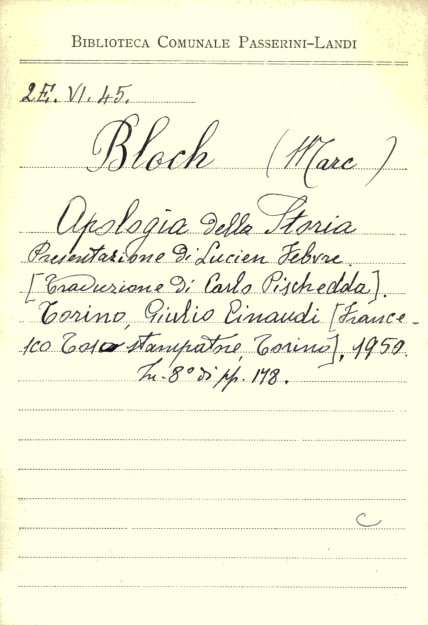 BIBLIOTECA COMUNALE PASSERINI-LANDI
2E. VI. 45.
Bloch (Marc)
Apologia della Storia
Presentazione di Lucien Febvre.
[Traduzione di Carlo Pischedda].
Torino, Giulio Einaudi [France-
sco Toso stampatore, Torino], 1950.
In-8° di pp. 178.
C